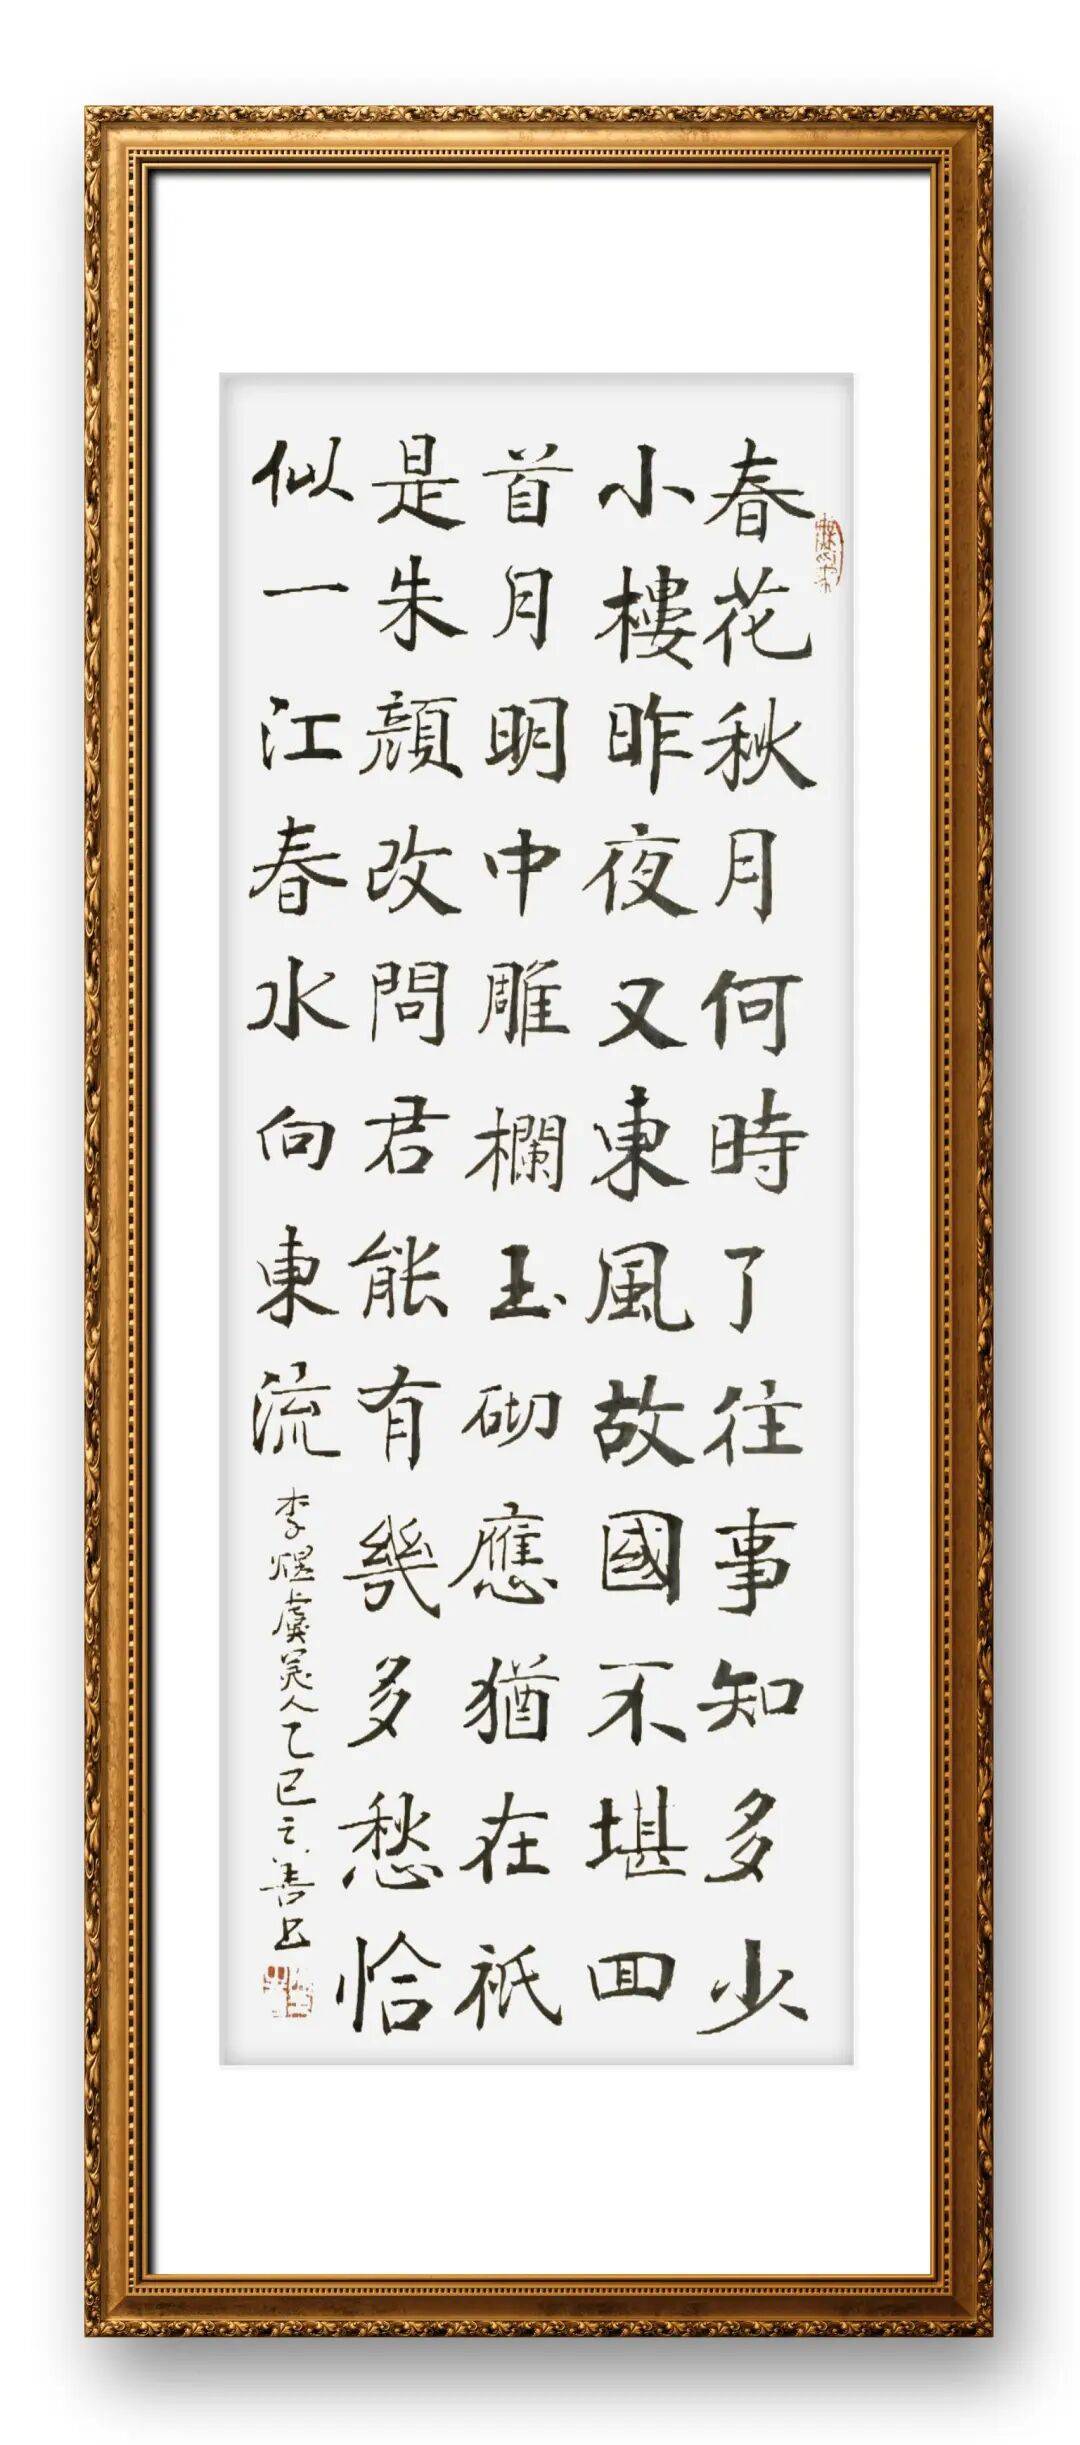 春花秋月何時了往事知多少
小樓昨夜又東風故國不堪回
首月明中雕欄玉砌應猶在祇
是朱顏改問君能有幾多愁恰
似一江春水向東流
李煜虞美人乙巳之善書